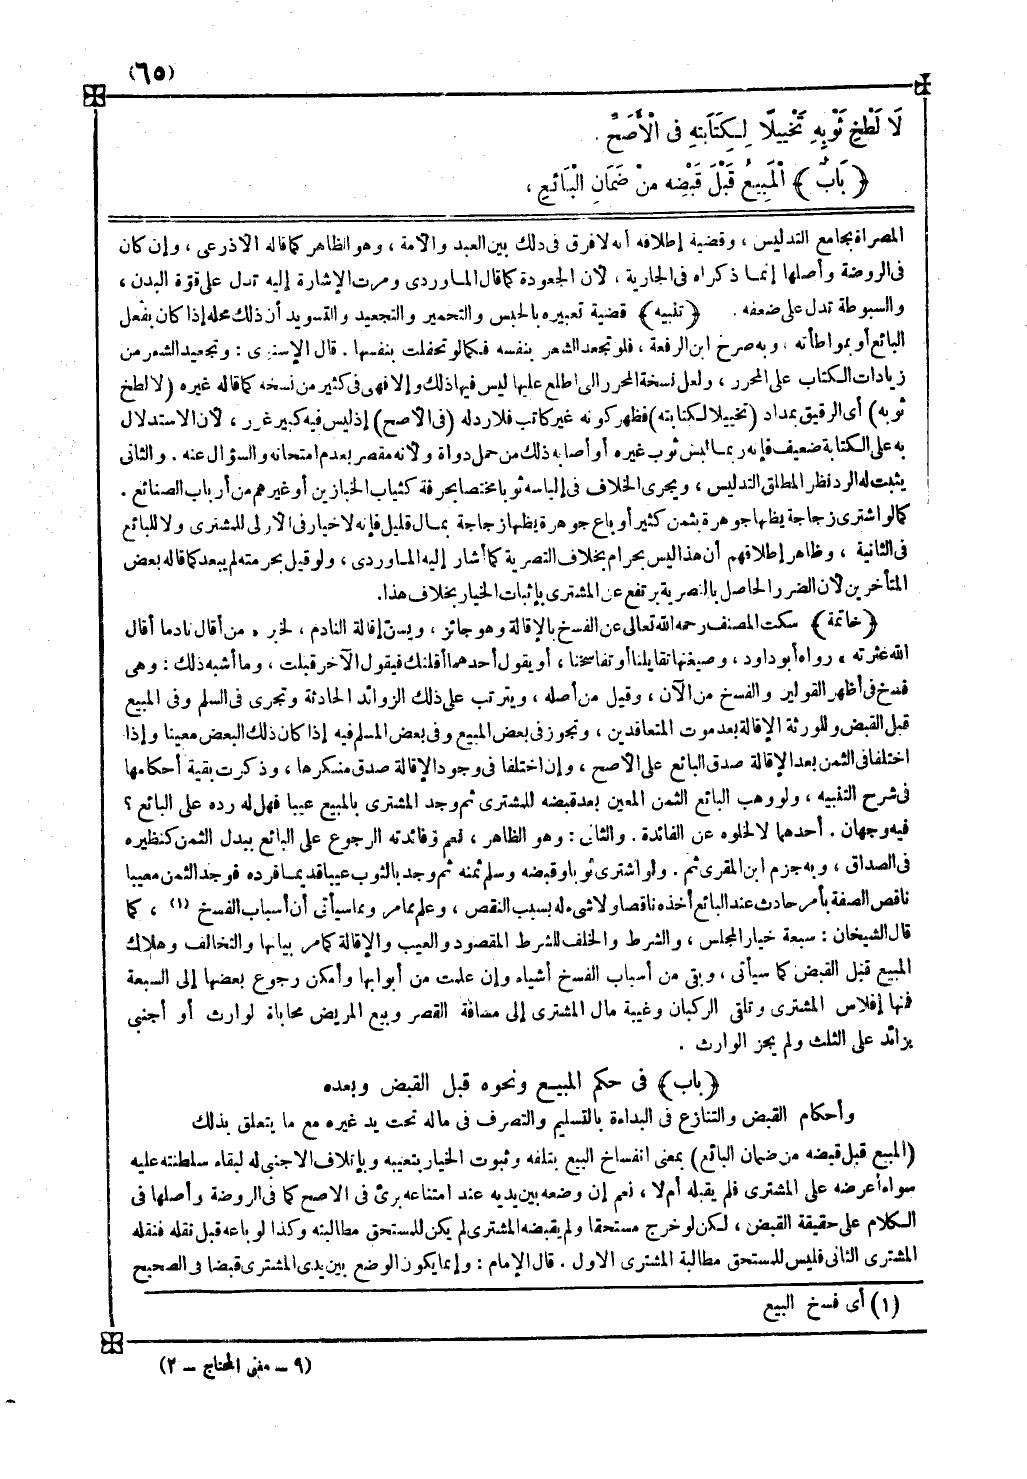 (٦٥)
لَا لَطْخِ ثَوْبِهِ تَخْيِيلًا لِكِتَابَتِهِ فِى الْأَصَحِّ .
﴿ بَابٌ ﴾ الْمَبِيعُ قَبْلَ قَبْضِهِ مِنْ ضَمَانِ الْبَائِعِ ،
المصراة بجامع التدليس ، وقضية إطلاقه أنه لا فرق فى ذلك بين العبد والأمة ، وهو الظاهر كما قاله الأذرعى ، وإن كان
فى الروضة وأصلها إنما ذكراه فى الجارية ، لأن الجعودة كما قال الماوردى ومرت الإشارة إليه تدل على قوّة البدن ،
والسبوطة تدل على ضعفه . ﴿ تنبيه ﴾ قضية تعبيره بالحبس والتحمير والتجعيد والتسويد أن ذلك محله إذا كان بفعل
البائع أو بمواطأته ، وبه صرح ابن الرفعة ، فلو تجعد الشعر بنفسه فكما لو تحفلت بنفسها . قال الإسنوى : وتجعيد الشعر من
زيادات الكتاب على المحرر ، ولعل نسخة المحرر التى اطلع عليها ليس فيها ذلك وإلا فهى فى كثير من نسخه كما قاله غيره (لا لطخ
ثوبه) أى الرقيق بمداد (تخييلا لكتابته) فظهر كونه غير كاتب فلا رد له (فى الأصح) إذ ليس فيه كبير غرر ، لأن الاستدلال
به على الكتابة ضعيف فإنه ربما لبس ثوب غيره أو أصابه ذلك من حمل دواة ولأنه مقصر بعدم امتحانه والسؤال عنه . والثانى
يثبت له الرد نظر المطلق التدليس ، ويجرى الخلاف فى إلباسه ثوبا مختصا بحرفة كثياب الخبازين أو غيرهم من أرباب الصنائع .
كما لو اشترى زجاجة يظنها جوهرة بثمن كثير أو باع جوهرة يظنها زجاجة بمال قليل فإنه لا خيار فى الأولى للمشترى ولا للبائع
فى الثانية ، وظاهر إطلاقهم أن هذا ليس بحرام بخلاف التصرية كما أشار إليه الماوردى ، ولو قيل بحرمته لم يبعد كما قاله بعض
المتأخرين لأن الضرر الحاصل بالتصرية يرتفع عن المشترى بإثبات الخيار بخلاف هذا.
﴿ خاتمة ﴾ سكت المصنف رحمه الله تعالى عن الفسخ بالإقالة وهو جائز ، ويسنّ إقالة النادم ، لخبر « من أقال نادما أقال
الله عثرته » رواه أبو داود ، وصيغتها تقايلنا أو تفاسخنا ، أو يقول أحدهما أقلتك فيقول الآخر قبلت ، وما أشبه ذلك : وهى
فسخ فى أظهر القولين والفسخ من الآن ، وقيل من أصله ، ويترتب على ذلك الزوائد الحادثة وتجرى فى السلم وفى المبيع
قبل القبض وللورثة الإقالة بعد موت المتعاقدين ، وتجوز فى بعض المبيع وفى بعض المسلم فيه إذا كان ذلك البعض معينا وإذا
اختلفا فى الثمن بعد الإقالة صدق البائع على الأصح ، وإن اختلفا فى وجود الإقالة صدق منكرها ، وذكرت بقية أحكامها
فى شرح التنبيه ، ولو وهب البائع الثمن المعين بعد قبضه للمشترى ثم وجد المشترى بالمبيع عيبا فهل له رده على البائع ؟
فيه وجهان . أحدهما لا لخلوه عن الفائدة . والثانى : وهو الظاهر ، نعم وفائدته الرجوع على البائع ببدل الثمن كنظيره
فى الصداق ، وبه جزم ابن المقرى ثم . ولو اشترى ثوبا وقبضه وسلم ثمنه ثم وجد بالثوب عيبا قديما فرده فوجد الثمن معيبا
ناقص الصفة بأمر حادث عند البائع أخذه ناقصا ولا شىء له بسبب النقص ، وعلم بما مر وبما سيأتى أن أسباب الفسخ (١) ، كما
قال الشيخان : سبعة خيار المجلس ، والشرط والخلف للشرط المقصود والعيب والإقالة كما مر بيانها والتخالف وهلاك
المبيع قبل القبض كما سيأتى ، وبقى من أسباب الفسخ أشياء وإن علمت من أبوابها وأمكن رجوع بعضها إلى السبعة
فمنها إفلاس المشترى وتلقى الركبان وغيبة مال المشترى إلى مسافة القصر وبيع المريض محاباة لوارث أو أجنبى
بزائد على الثلث ولم يجز الوارث .
﴿ باب ﴾ فى حكم المبيع ونحوه قبل القبض وبعده
وأحكام القبض والتنازع فى البداءة بالتسليم والتصرف فى ماله تحت يد غيره مع ما يتعلق بذلك
(المبيع قبل قبضه من ضمان البائع) بمعنى انفساخ البيع بتلفه وثبوت الخيار بتعيبه وبإتلاف الأجنبى له لبقاء سلطنته عليه
سواء أعرضه على المشترى فلم يقبله أم لا ، نعم إن وضعه بين يديه عند امتناعه برئ فى الأصح كما فى الروضة وأصلها فى
الكلام على حقيقة القبض ، لكن لو خرج مستحقا ولم يقبضه المشترى لم يكن للمستحق مطالبته وكذا لو باعه قبل نقله فنقله
المشترى الثانى فليس للمستحق مطالبة المشترى الأول . قال الإمام : وإنما يكون الوضع بين يدى المشترى قبضا فى الصحيح
(١) أى فسخ البيع
(٩ ــ مغنى المحتاج ــ ٢)